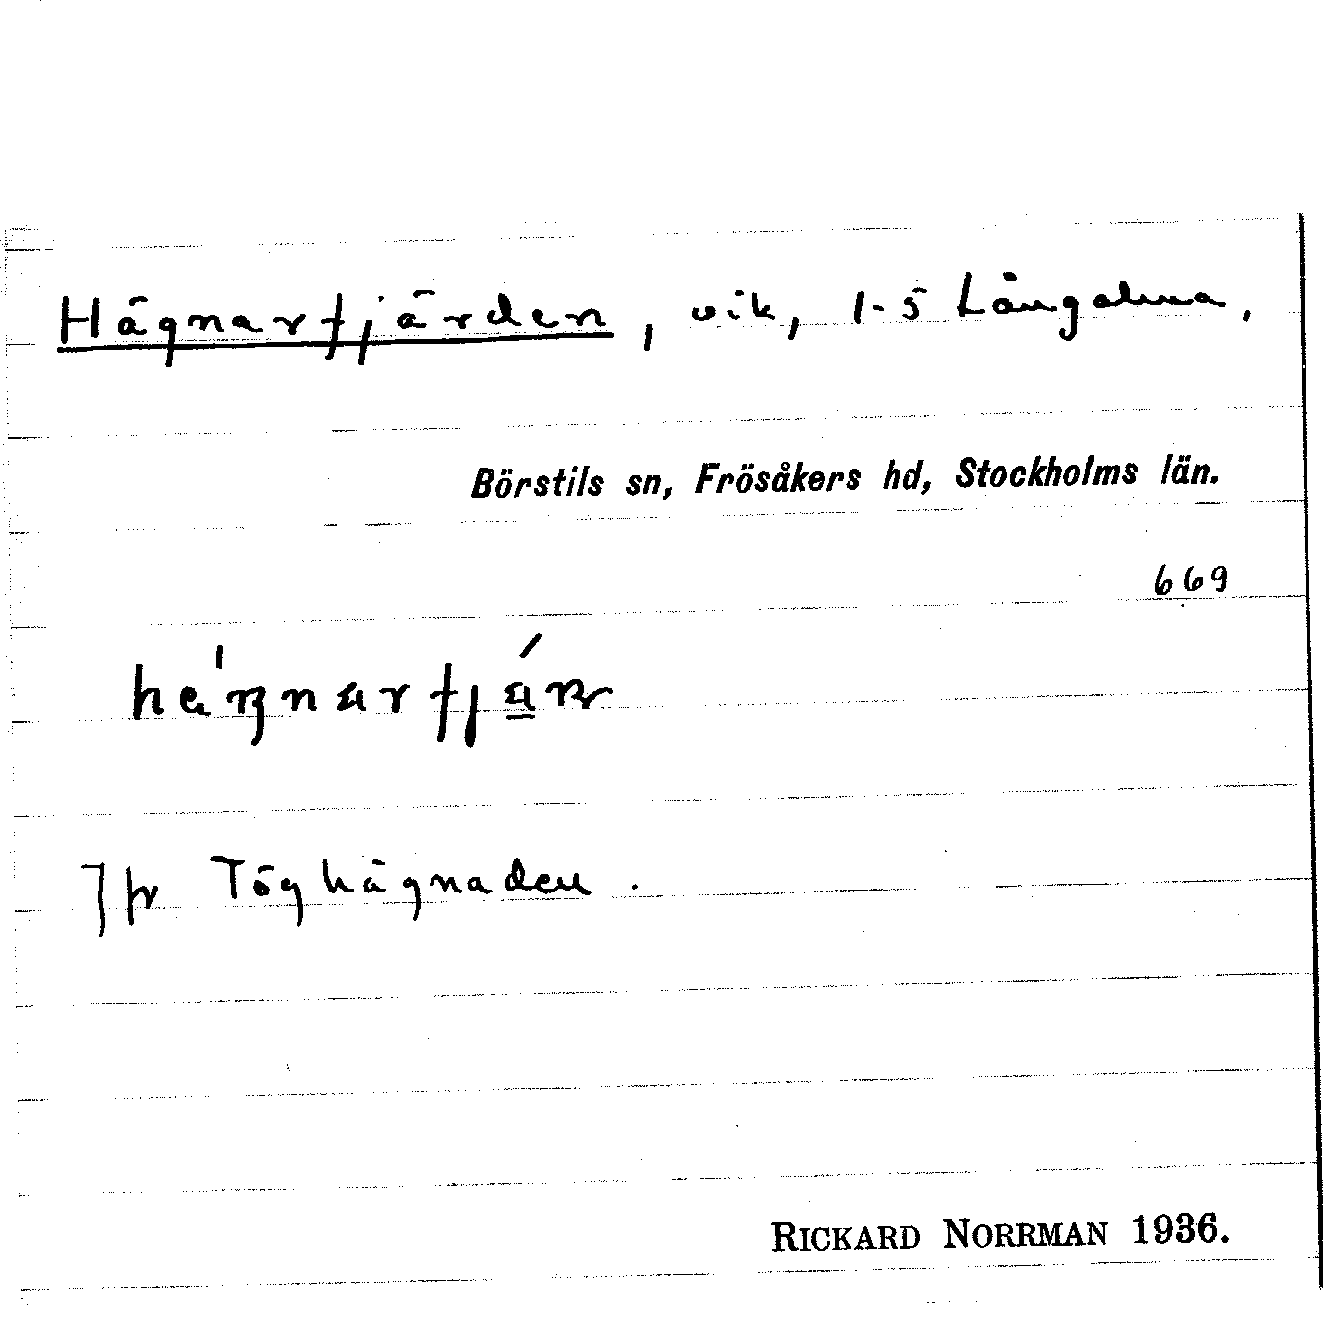 Hägnarfjärden, vik, 1-5 Långalma,
Börstils sn, Frösåkers hd, Stockholms län.
669
Jfr Töghägnaden.
RICKARD NORRMAN 1936.